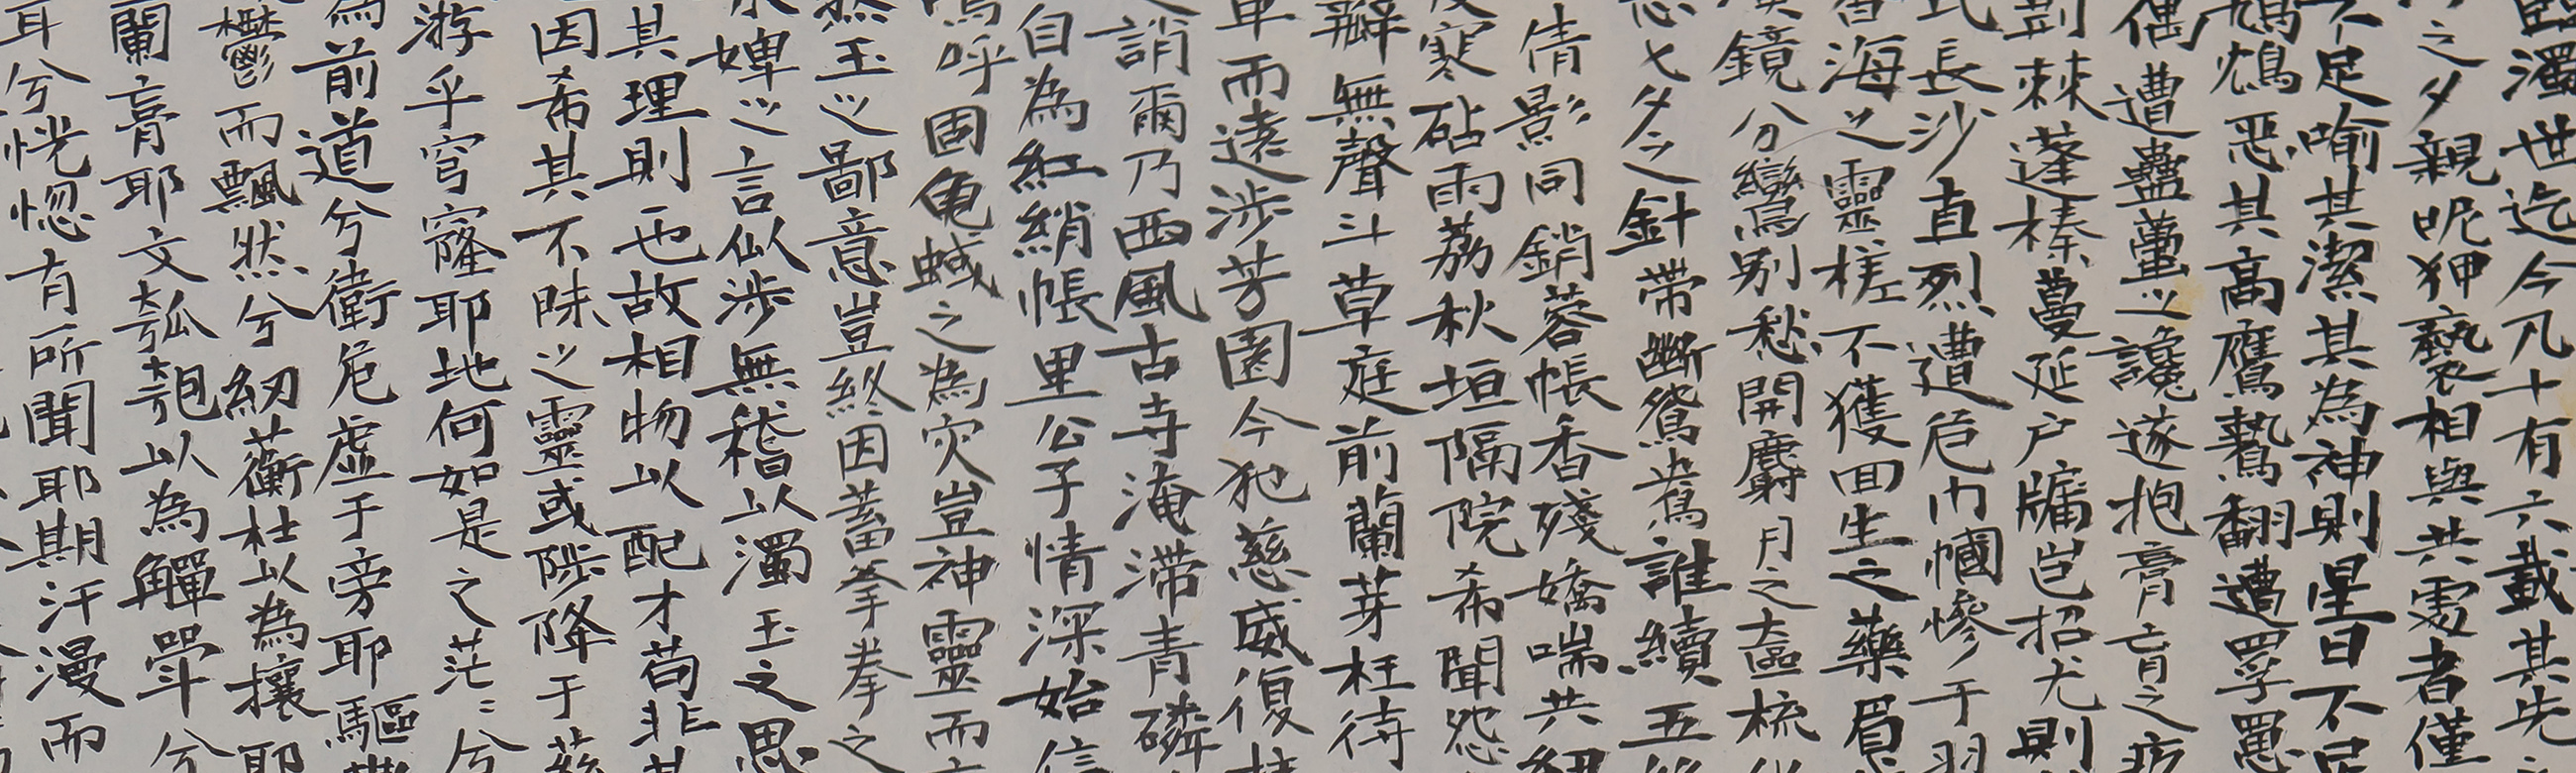 濁世迄今凡十有六載其先
之夕親昵狎褻相與共處者僅
不足喻其潔其為神則星日不足
鴆惡其高鷹鷙翻遭罦罬
偶遭蠱蠆之讒遂抱膏肓之疚
荆棘蓬榛蔓延户牖豈招尤則
長沙直烈遭危巾幗慘于羽
海之靈槎不獲回生之藥眉
鏡分鸞别愁開麝月之奩梳
忘七夕之針帶斷鴛鴦誰續五
倩影同銷蓉帳香殘嬌喘共
寒砧雨荔秋垣隔院希聞怨
無聲斗草庭前蘭芽枉待
而遠涉芳園今犯慈威復拄
誚爾乃西風古寺淹滯青磷
自為紅綃帳里公子情深始信
嗚呼固鬼蜮之為灾豈神靈而
然玉之鄙意豈終因蓄拳拳之
婢之言似涉無稽以濁玉之思
其理則也故相物以配才苟非其
因希其不昧之靈或陟降于兹
游乎穹窿耶地何如是之茫茫兮
為前道兮衛危虚于旁耶驅
鬱而飄然兮紉蘅杜以為纕耶
蘭膏耶文瓟匏以為觶斝兮
耳兮恍惚有所聞耶期汗漫而